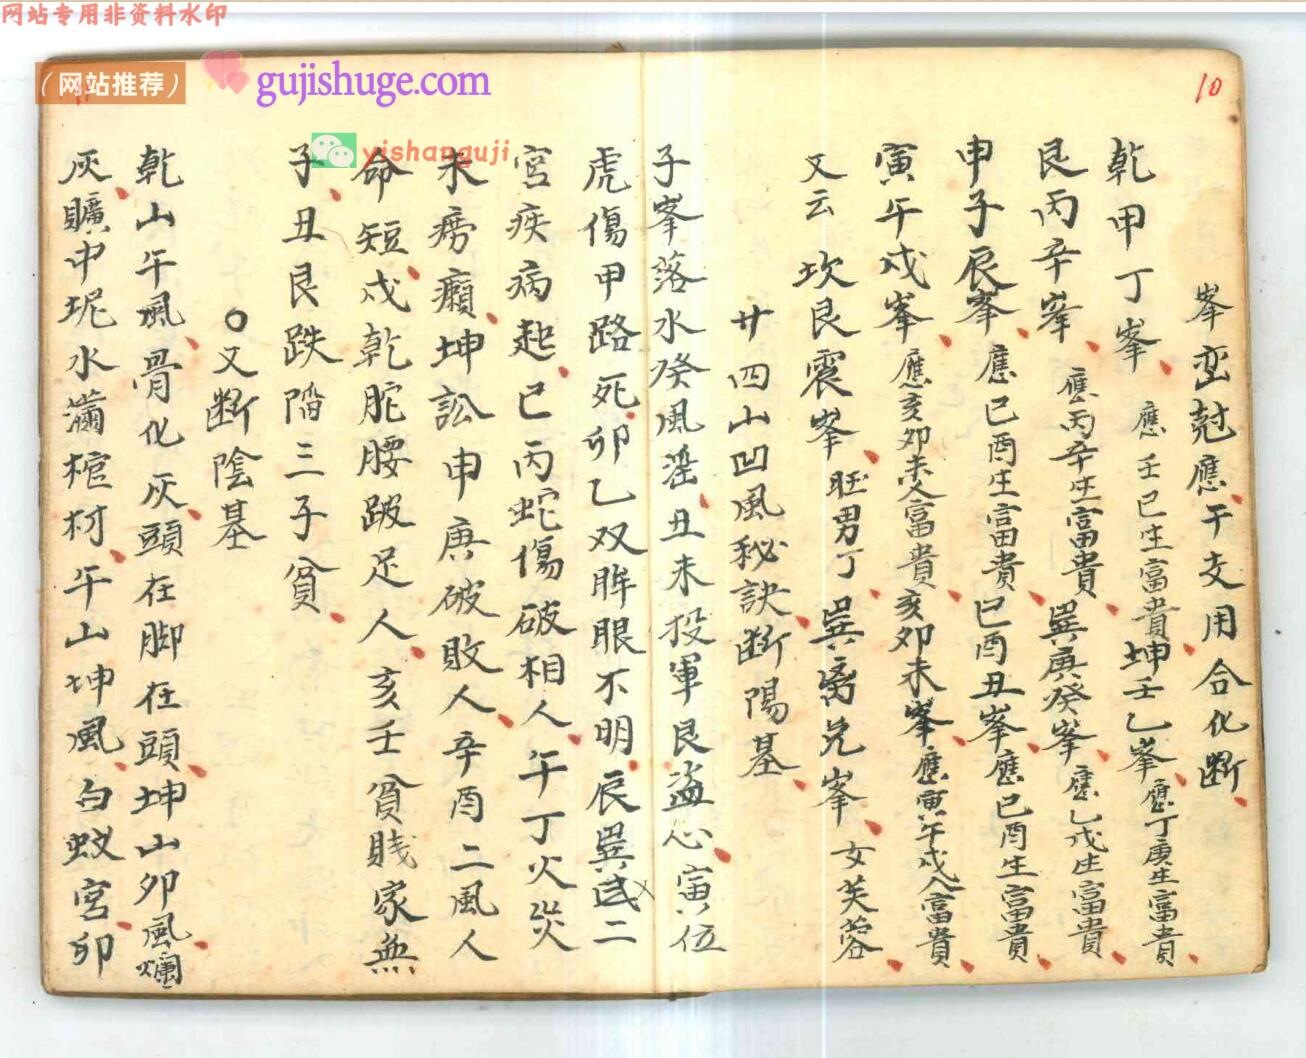 网站专用非资料水印
（网站推荐）
gujishuge.com
yishanguji
10
峯峦尅應干支用合化断
乾甲丁峯應壬巳生富貴坤壬乙峯應丁庚生富貴
艮丙辛峯應丙辛生富貴巽庚癸峯應乙戌生富貴
申子辰峯應巳酉生富貴巳酉丑峯應巳酉生富貴
寅午戌峯應亥卯未人富貴亥卯未峯應寅午戌人富貴
又云坎艮震峯旺男丁巽离兑峯女芙蓉
廿四山凹風秘訣断陽基
子峯落水癸風滛丑未投軍艮盗心寅位
虎傷甲路死卯乙双眸眼不明辰巽二
宮疾病起巳丙蛇傷破相人午丁火災
未痨癩坤訟申庚破敗人辛酉二風人
命短戍乾舵腰跛足人亥壬貧賎家無
子丑艮跌陷三子貧
○又断陰基
乾山午風骨化灰頭在脚在頭坤山卯風爛
灰壙中坭水滿棺材午山坤風白蚁宮卯